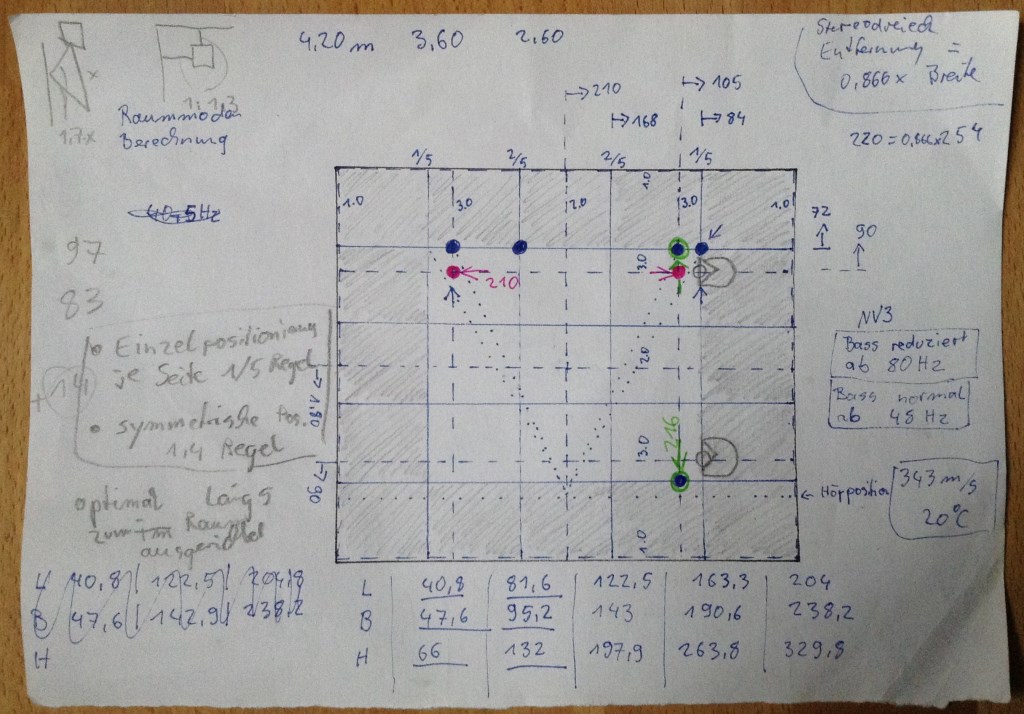 4,20 m 3,60 2,60
Stereodreieck
Entfernung =
0,866 x Breite
220 = 0,866 x 254
1,7 x
1,3
Raummoden
Berechnung
40,5 Hz
97
83
• Einzelpositionierung
je Seite 1/5 Regel
• symmetrische Pos.
1,4 Regel
+ 1,4
optimal längs
zum Raum
ausgerichtet
↦ 210
↦ 105
↦ 168
↦ 84
1/5 2/5 2/5 1/5
1.0 3.0 2.0 1.0 3.0 1.0
72
90
3.0
210
2.0
↦ 1.80
216
3.0
↦ 90
1.0
← Hörposition
NV3
Bass reduziert
ab 80 Hz
Bass normal
ab 45 Hz
343 m/s
20°C
L 40,8 122,5 204,8
B 47,6 142,9 238,2
H
L 40,8 81,6 122,5 163,3 204
B 47,6 95,2 143 190,6 238,2
H 66 132 197,9 263,8 329,8